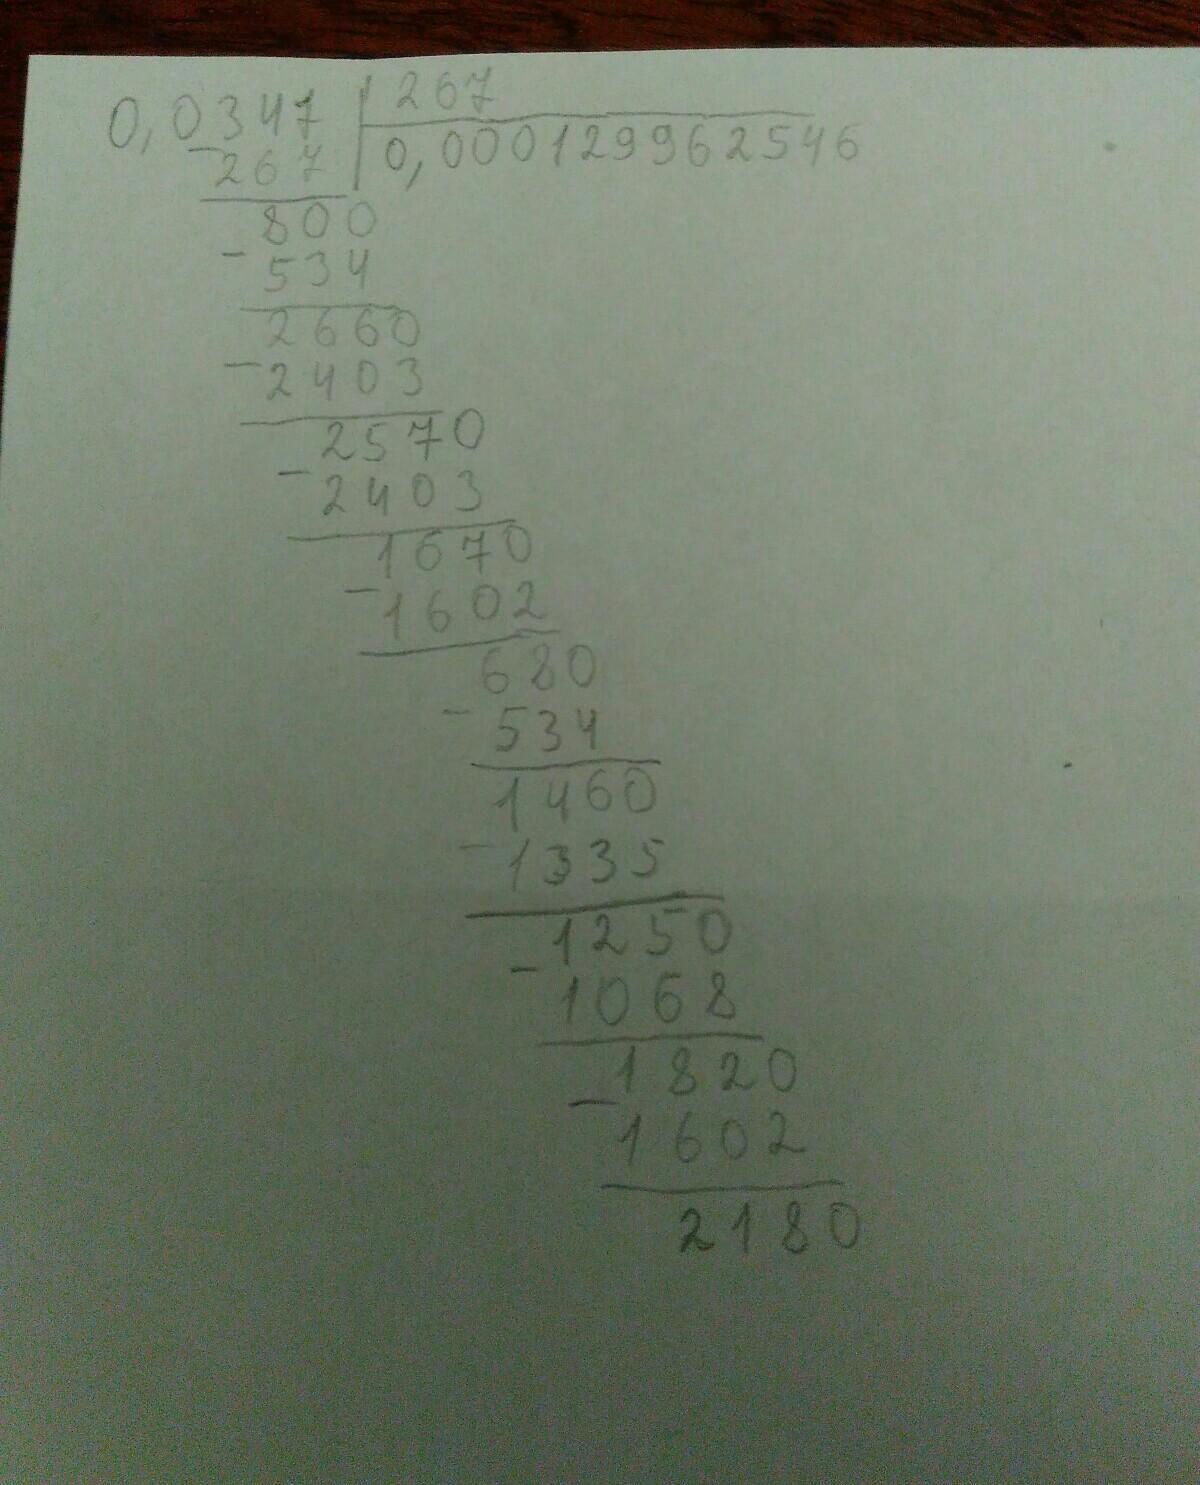 0,0347 267
- 267 0,000129962546
800
- 534
2660
- 2403
2570
- 2403
1670
- 1602
680
- 534
1460
- 1335
1250
- 1068
1820
- 1602
2180